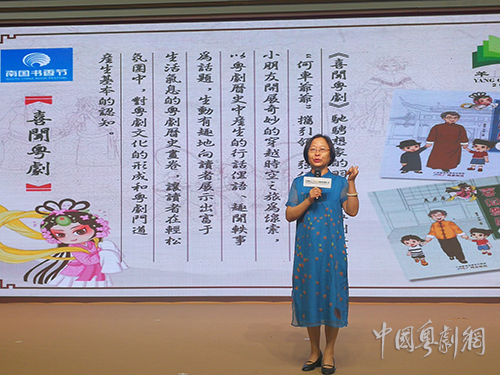 南国书香节
喜聞粵劇
《喜聞粵劇》馳騁想象的
“何車爺爺”攜
小朋友開展奇妙的穿越時空之旅為線索，
以粵劇曆史中產生的行話俚語、趣聞軼事
為話題，生動有趣地向讀者展示出富于
生活氣息的粵劇曆史畫卷，讓讀者在輕松
氛圍中，對粵劇文化的形成和粵劇門道
產生基本的認知。
羊
YANG
中國粵劇網